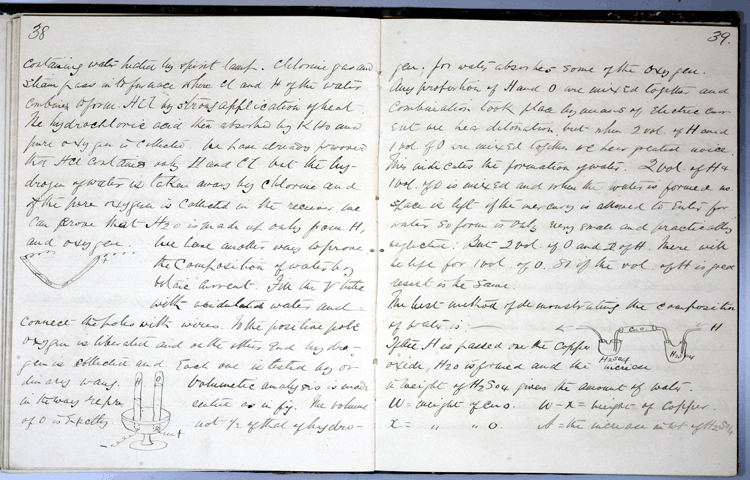 38
containing water heated by spirit lamp. Chlorine gas and
steam pass into furnace where Cl and H of the water
combines to form HCl by strong application of heat.
The hydrochloric acid then absorbed by KHO and
pure oxygen is collected. We have already proved
that HCl contains only H and Cl but the hy-
drogen of water is taken away by chlorine and
if the pure oxygen is collected in the receiver we
can prove that H2O is made up only from H,
and oxygen. We have another way to prove
the composition of water by
current. Fill the V tube
with acidulated water and
connect the poles with wires. To the positive pole
oxygen is liberated and on the other end hydro-
gen is collected and Each one is tested by or-
dinary ways. Volumetric analysis is made
in the way as in fig. The volume
of O is Exactly not 1/2 of that of hydro-
39.
gen. for water absorbes some of the oxygen.
Any proportion of H and O are mixed together and
combination took place by means of Electric curr-
ent we hear detonation, but when 2 vol. of H and
1 vol. of O are mixed together we hear greatest noise.
This indicates the formation of water. 2 vol. of H &
1 vol. of O is mixed and when the water is formed no
space is left if the mercury is allowed to enter for
water so form is only very small and practically
neglected. But 2 vol. of O and 2 of H. there will
be left for 1 vol. of O. So if the vol. of H is
result is the same.
The best method of demonstrating the composition
of water is: — H
If the H is passed on the Copper H2SO4 H2SO4
oxide, H2O is formed and the increase
in weight of H2SO4 gives the amount of water.
W = weight of CuO. W - x = weight of Copper.
x = " " O. A = the increase in wt of H2SO4